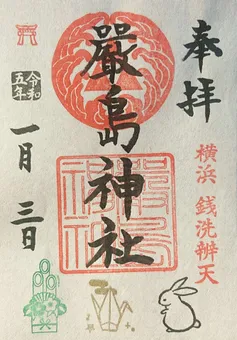 奉拝
横浜 銭洗辨天
嚴島神社
令和
五年
一月三日